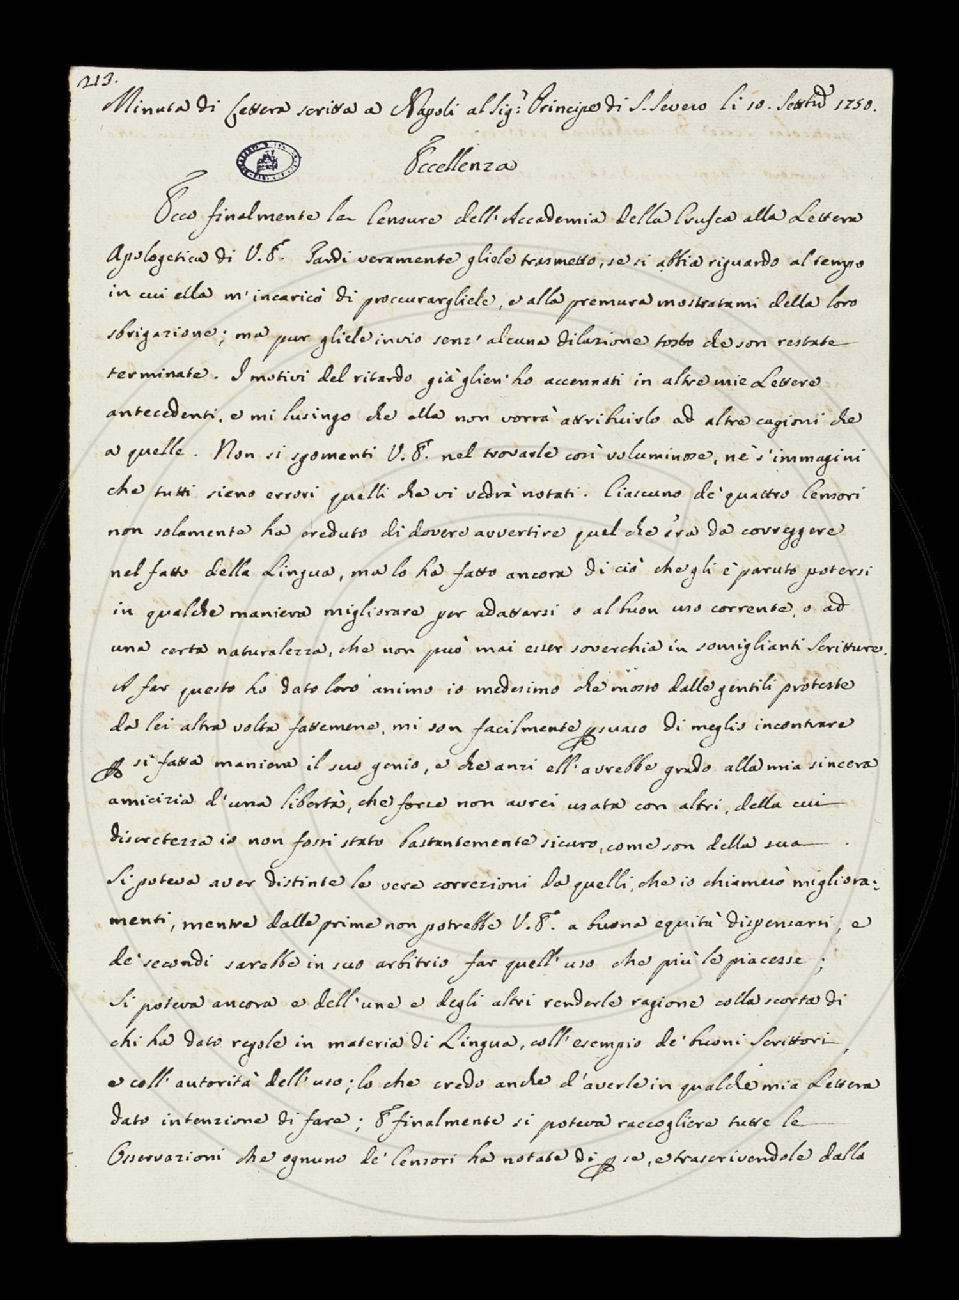 213.
Minuta di Lettera scritta a Napoli al Sig.r Principe di S. Severo li 10. Settre 1750.
Eccellenza
Ecco finalmente le Censure dell'Accademia della Crusca alla Lettera
Apologetica di V.E. Tardi veramente gliele trasmetto, se si abbia riguardo al tempo
in cui ella m'incaricò di proccurargliele, e alla premura mostratami della loro
sbrigazione; ma pur gliele invio senz'alcuna dilazione tosto che son restate
terminate. I motivi del ritardo già glien'ho accennati in altre mie Lettere
antecedenti, e mi lusingo che ella non vorrà attribuirlo ad altre cagioni che
a quelle. Non si sgomenti V.E. nel trovarle così voluminose, nè s'immagini
che tutti sieno errori quelli che vi vedrà notati. Ciascuno de' quattro Censori
non solamente ha creduto di dovere avvertire quel che v'era da correggere
nel fatto della Lingua, ma lo ha fatto ancora di ciò che gli è paruto potersi
in qualche maniera migliorare per adattarsi o al buon uso corrente, o ad
una certa naturalezza, che non può mai esser soverchia in somiglianti Scritture.
A far questo hò dato loro animo io medesimo che mosso dalle gentili proteste
da lei altra volta fattemene, mi son facilmente psuaso di meglio incontrare
p sì fatta maniera il suo genio, e che anzi ell'avrebbe grado alla mia sincera
amicizia d'una libertà, che forse non avrei usata con altri, della cui
discretezza io non fossi stato bastantemente sicuro, come son della sua
Si poteva aver distinte le vere correzioni da quelli, che io chiamerò migliora-
menti, mentre dalle prime non potrebbe V.E. a buona equità dispensarsi, e
de' secondi sarebbe in suo arbitrio far quell'uso che più le piacesse;
Si poteva ancora e dell'une e degli altri renderle ragione colla scorta di
chi ha dato regole in materia di Lingua, coll'esempio de' buoni Scrittori,
e coll'autorità dell'uso; lo che credo anche d'averle in qualche mia Lettera
dato intenzione di fare; E finalmente si poteva raccogliere tutte le
Osservazioni che ognuno de' Censori ha notate di p se, e trascrivendole dalla